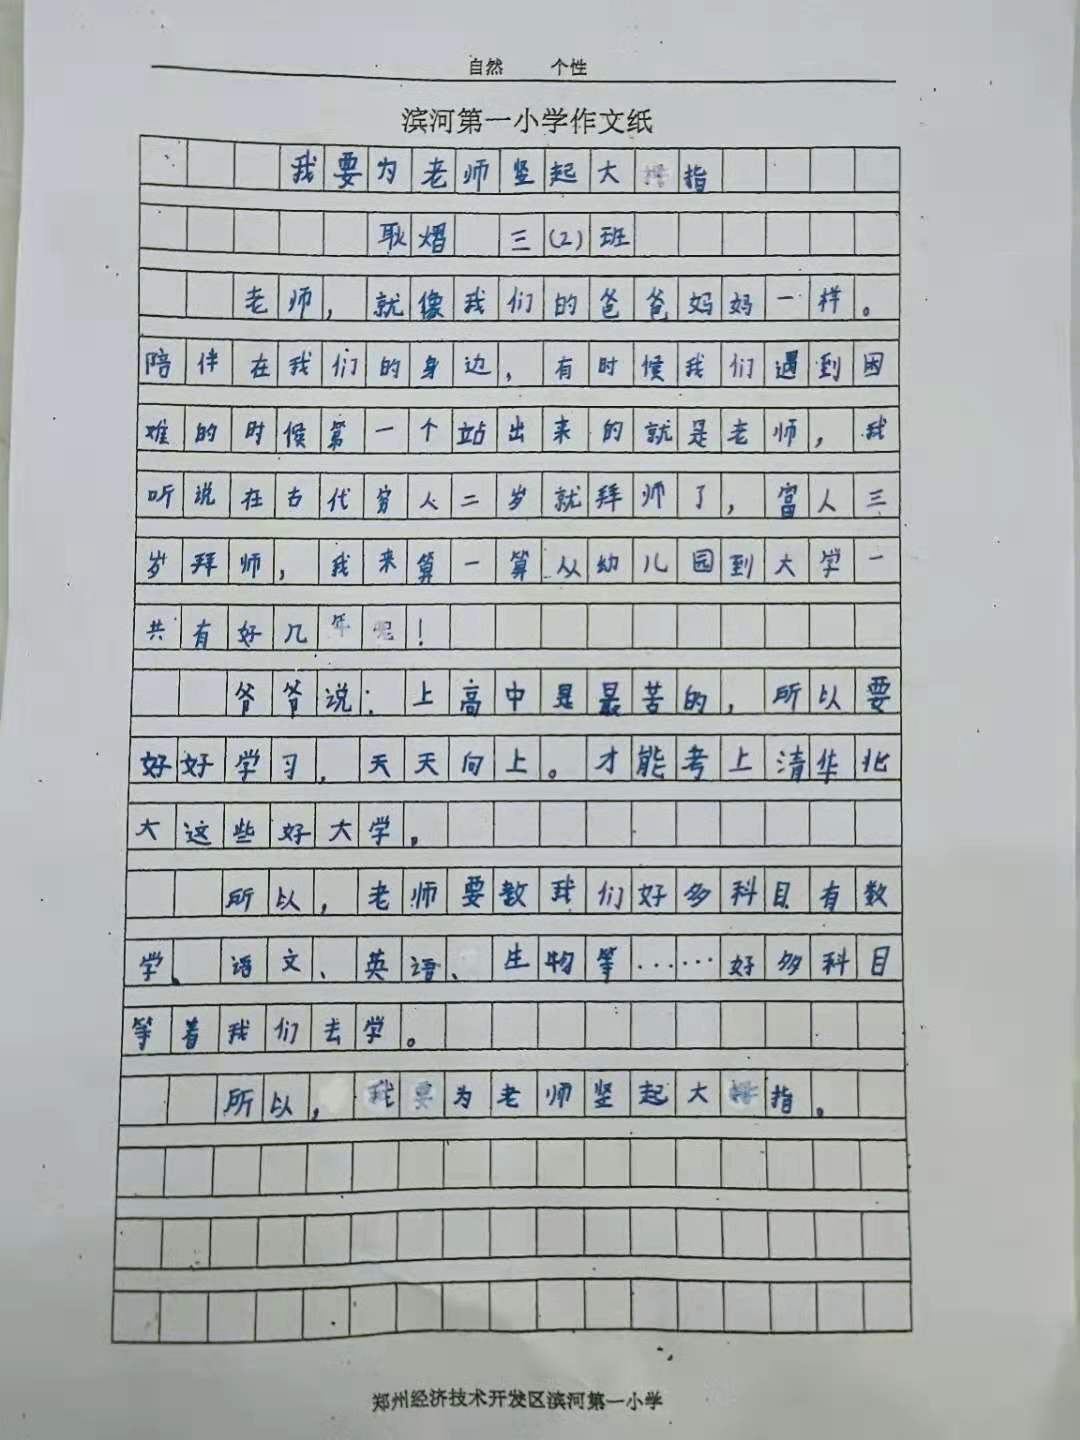 自然 个性
滨河第一小学作文纸
我要为老师竖起大拇指
耿熠 三(2)班
老师，就像我们的爸爸妈妈一样。
陪伴在我们的身边，有时候我们遇到困
难的时候第一个站出来的就是老师，我
听说在古代穷人二岁就拜师了，富人三
岁拜师，我来算一算从幼儿园到大学一
共有好几年呢！
爷爷说：上高中是最苦的，所以要
好好学习，天天向上。才能考上清华北
大这些好大学。
所以，老师要教我们好多科目有数
学、语文、英语、生物等……好多科目
等着我们去学。
所以，我要为老师竖起大拇指。
郑州经济技术开发区滨河第一小学